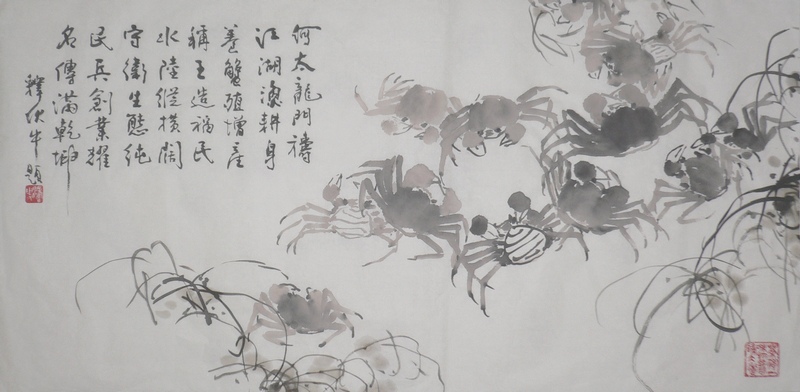 何太龍門禱
江湖漁耕身
養蟹殖增產
稱王造福民
水陸縱橫闊
守衛生態純
民兵創業耀
名傳滿乾坤
釋伏牛題